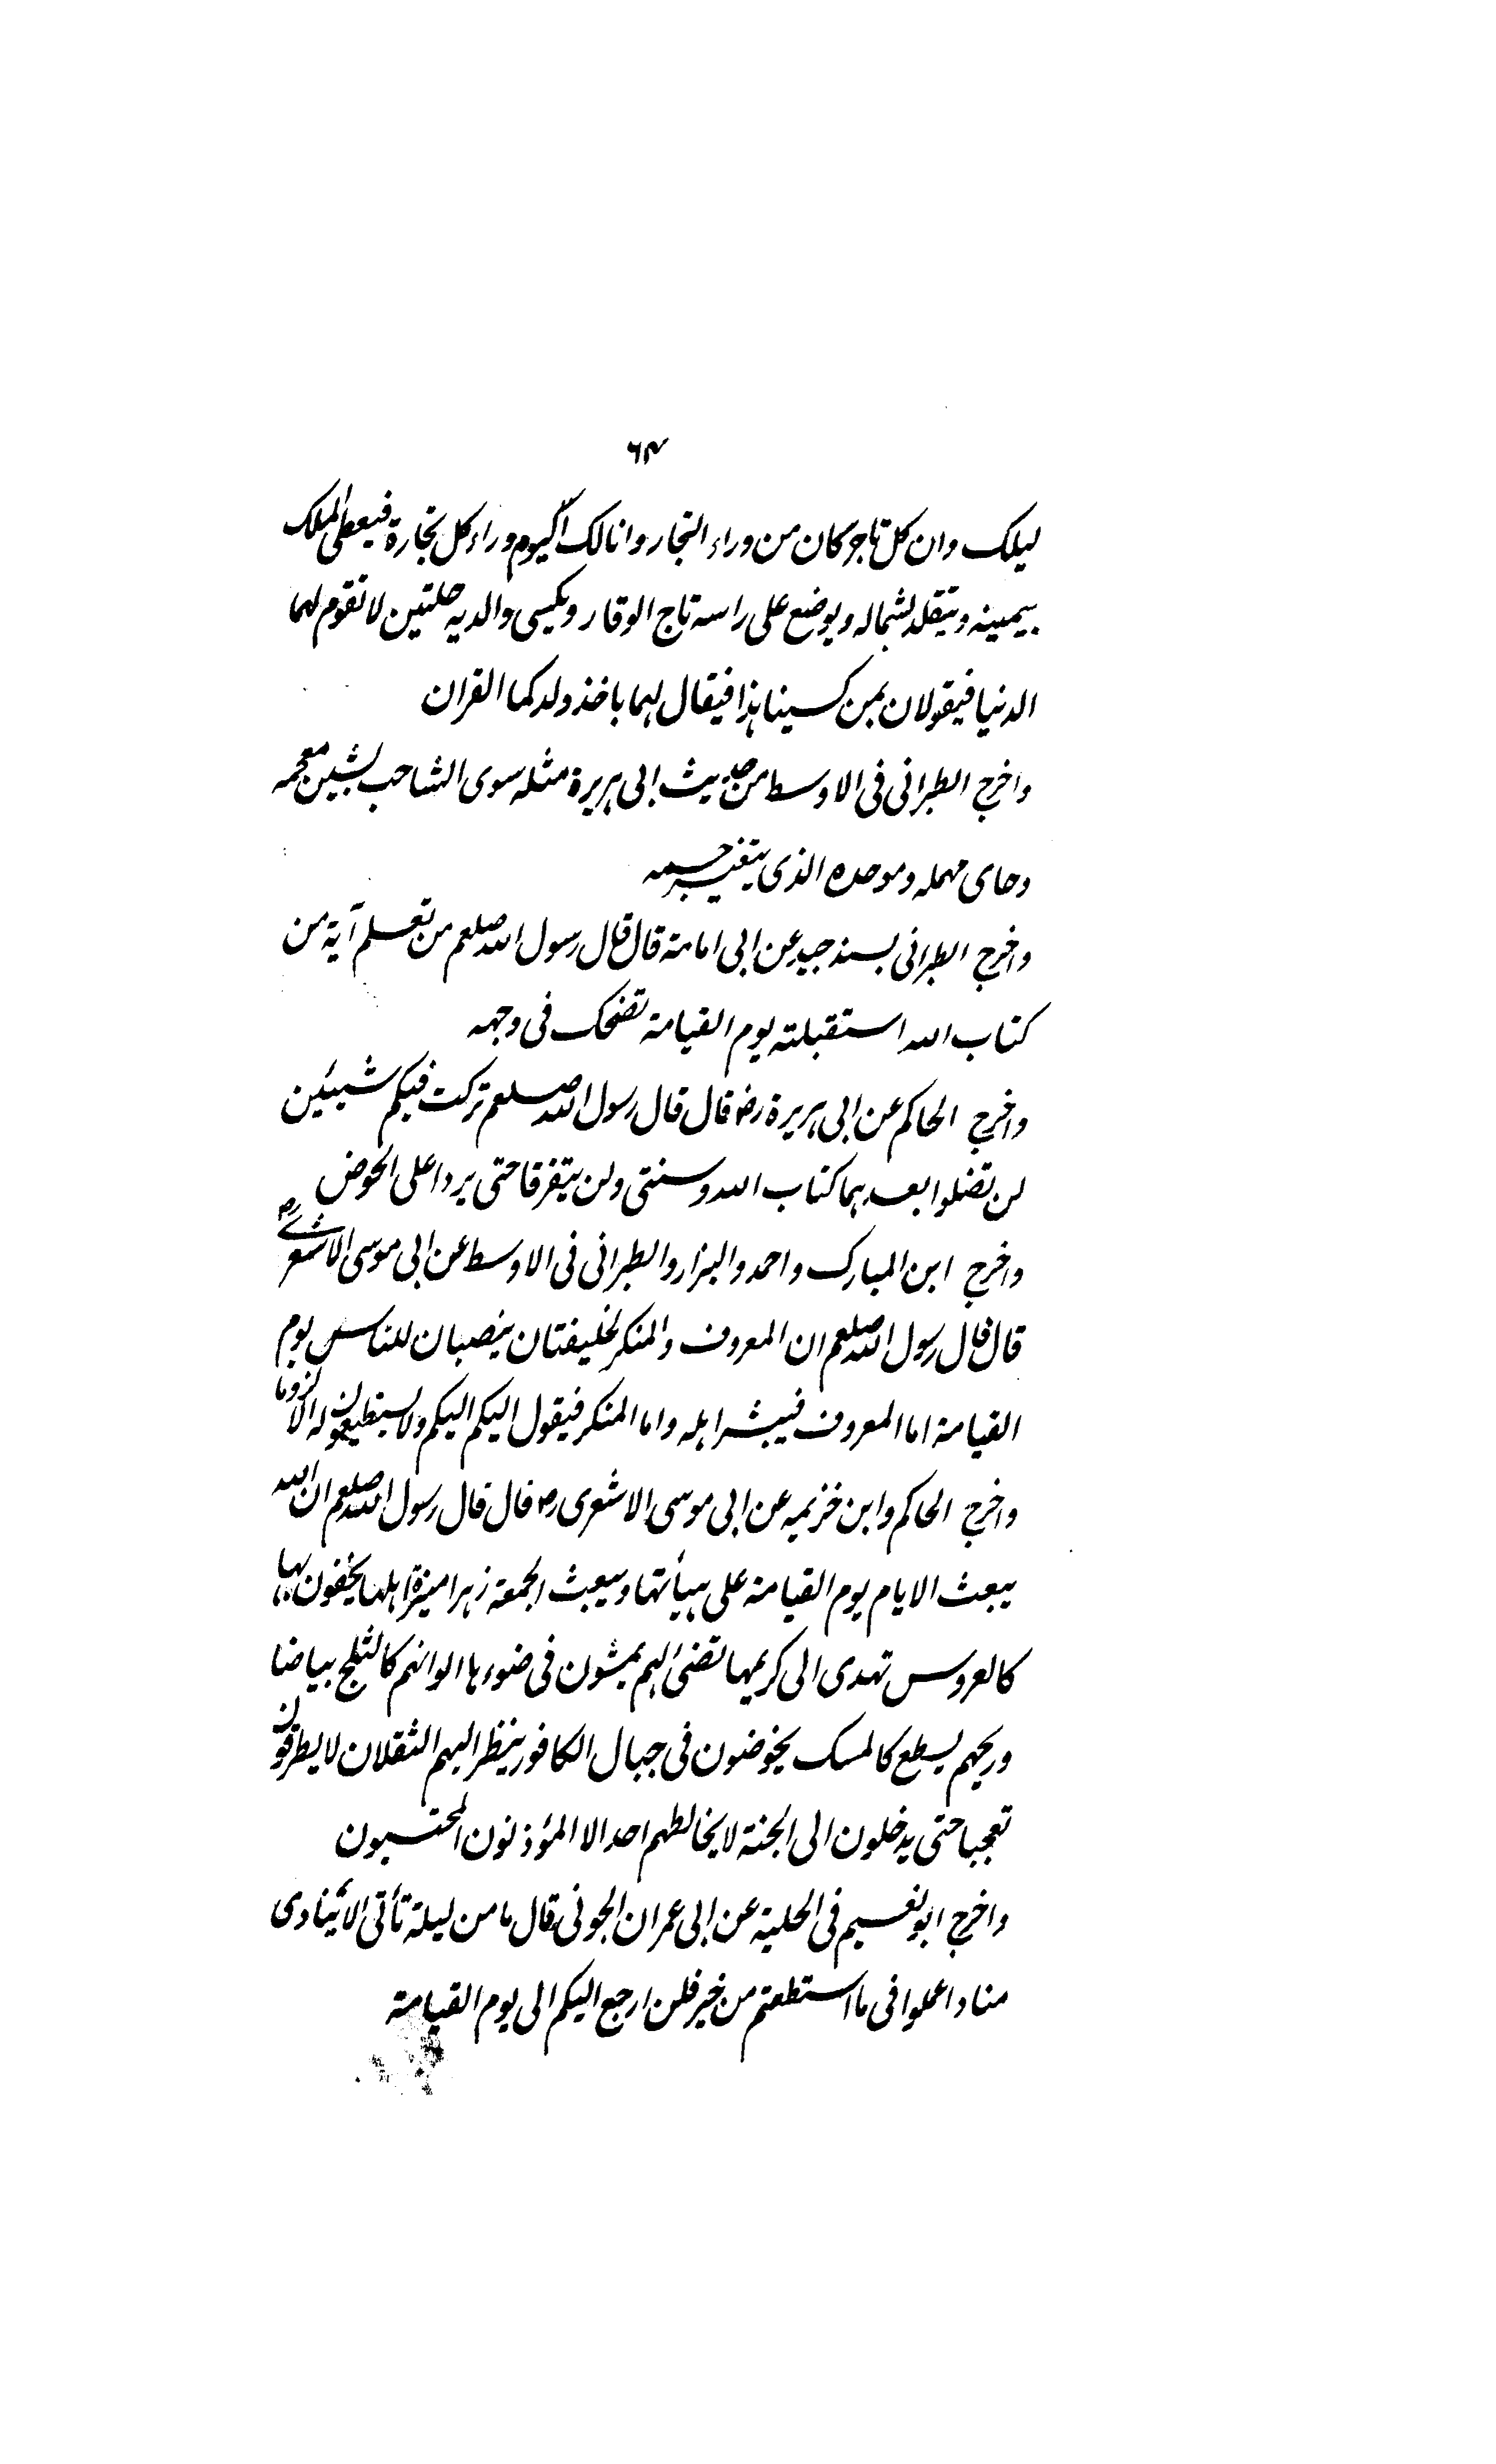 ٦٣
ليلك وان كل تاجر كان من وراء التجار وانا لك اليوم وراء كل تجارة فيعطى الملك
بيمينه ويتقلد بشماله ويوضع على راسه تاج الوقار ويكسى والديه حلتين لا تقوم لهما
الدنيا فيقولان بمن كسينا هذا فيقال لهما باخذ ولدكما القران
واخرج الطبرانى فى الاوسط من حديث ابى هريرة مثله سوى الشاحب بشين معجمه
وحاى مهمله وموحده الذى يتغير جسمه
واخرج الطبرانى بسند جيد عن ابى امامة قال قال رسول الله صلعم من تعلم آية من
كتاب الله استقبلته يوم القيامة تضحك فى وجهه
واخرج الحاكم عن ابى هريرة رضه قال قال رسول الله صلعم تركت فيكم شيئين
لن تضلوا بعدهما كتاب الله وسنتى ولن يتفرقا حتى يردا على الحوض
واخرج ابن المبارك واحمد والبزار والطبرانى فى الاوسط عن ابى موسى الاشعرى رض
قال قال رسول الله صلعم ان المعروف والمنكر لخليفتان ينصبان للناس يوم
القيامة اما المعروف فيبشر اهله واما المنكر فيقول اليكم اليكم ولا يستطيعون له الا لزوما
واخرج الحاكم وابن خزيمه عن ابى موسى الاشعرى رض قال قال رسول الله صلعم ان الله
يبعث الايام يوم القيامة على هيأتها ويبعث الجمعة زهرا منيرة اهلها يخفون بها
كالعروس تهدى الى كريمها تضئ لهم يمشون فى ضوءها الوانهم كالثلج بياضا
وريحهم يسطع كالمسك يخوضون فى جبال الكافور ينظر اليهم الثقلان لا يطرقون
تعجبا حتى يدخلون الى الجنة لا يخالطهم احد الا المؤذنون المحتسبون
واخرج ابو نعيم فى الحلية عن ابى عمران الجونى قال ما من ليلة تأتى الا ينادى
مناد اعملوا فى ما استطعتم من خير فلن ارجع اليكم الى يوم القيامة